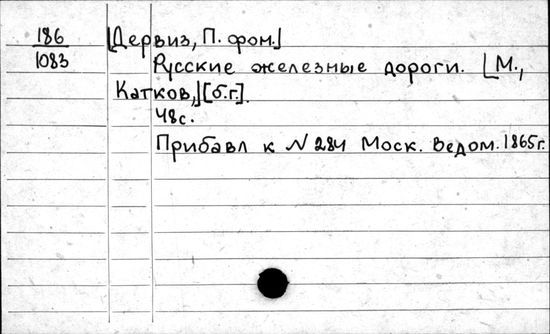 186 [Дервиз, П. фом.]
1083 Русские железные дороги. [М.,
Катков,][б.г].
48с.
Прибавл к N 284 Моск. Ведом. 1865г.